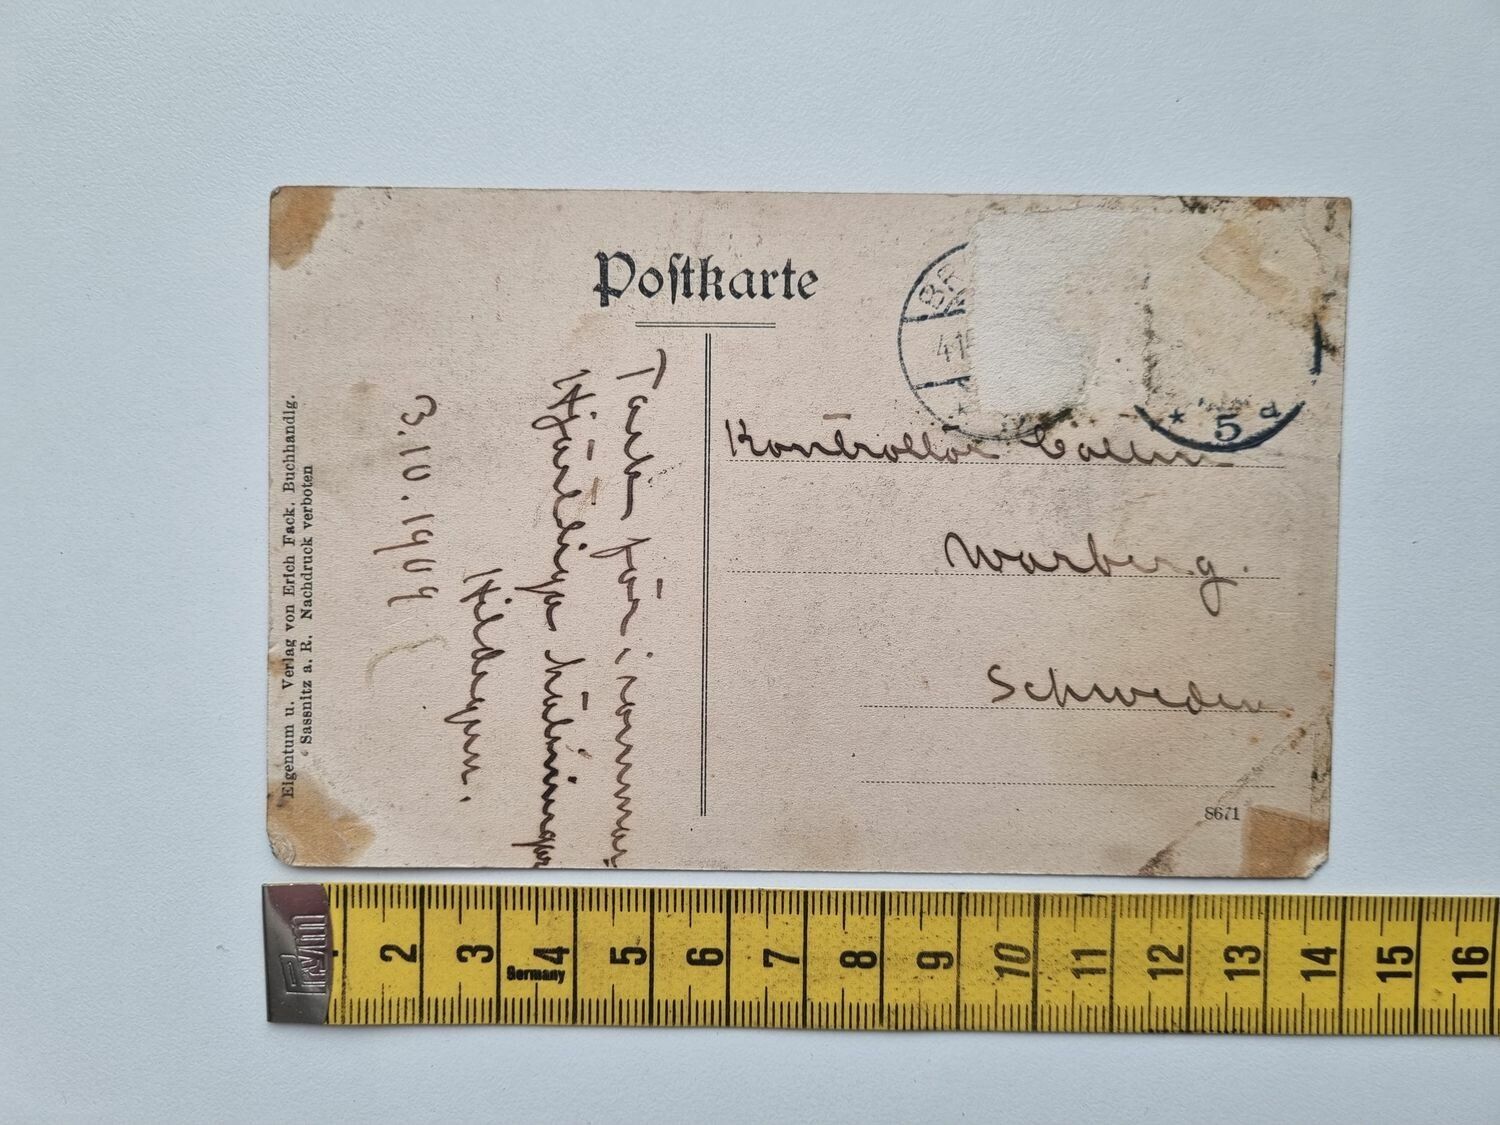 Postkarte
Eigentum u. Verlag von Erich Fack, Buchhandlg.
Sassnitz a. R. Nachdruck verboten
Tack för
Hjärtliga hälsningar
Hildegun.
3.10.1909
BR
4.1
* 5 d
*
Kontrollör Collin
Warberg.
Schweden
8671
Prym
Germany
2 3 4 5 6 7 8 9 10 11 12 13 14 15 16